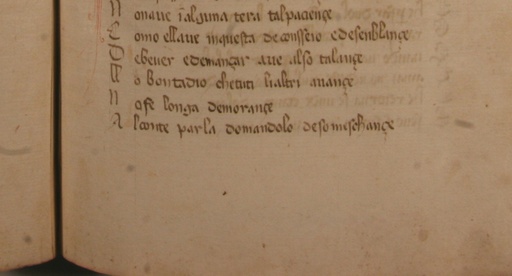 N onave i alguna tera tal paciençe
C omo ell ave inquesta de conseio e desenblançe
D e bever e de mançar ave also talançe
M o bontadio che tuti li altri avançe
N o fe longa demorançe
A l conte parla domandolo de so meschançe